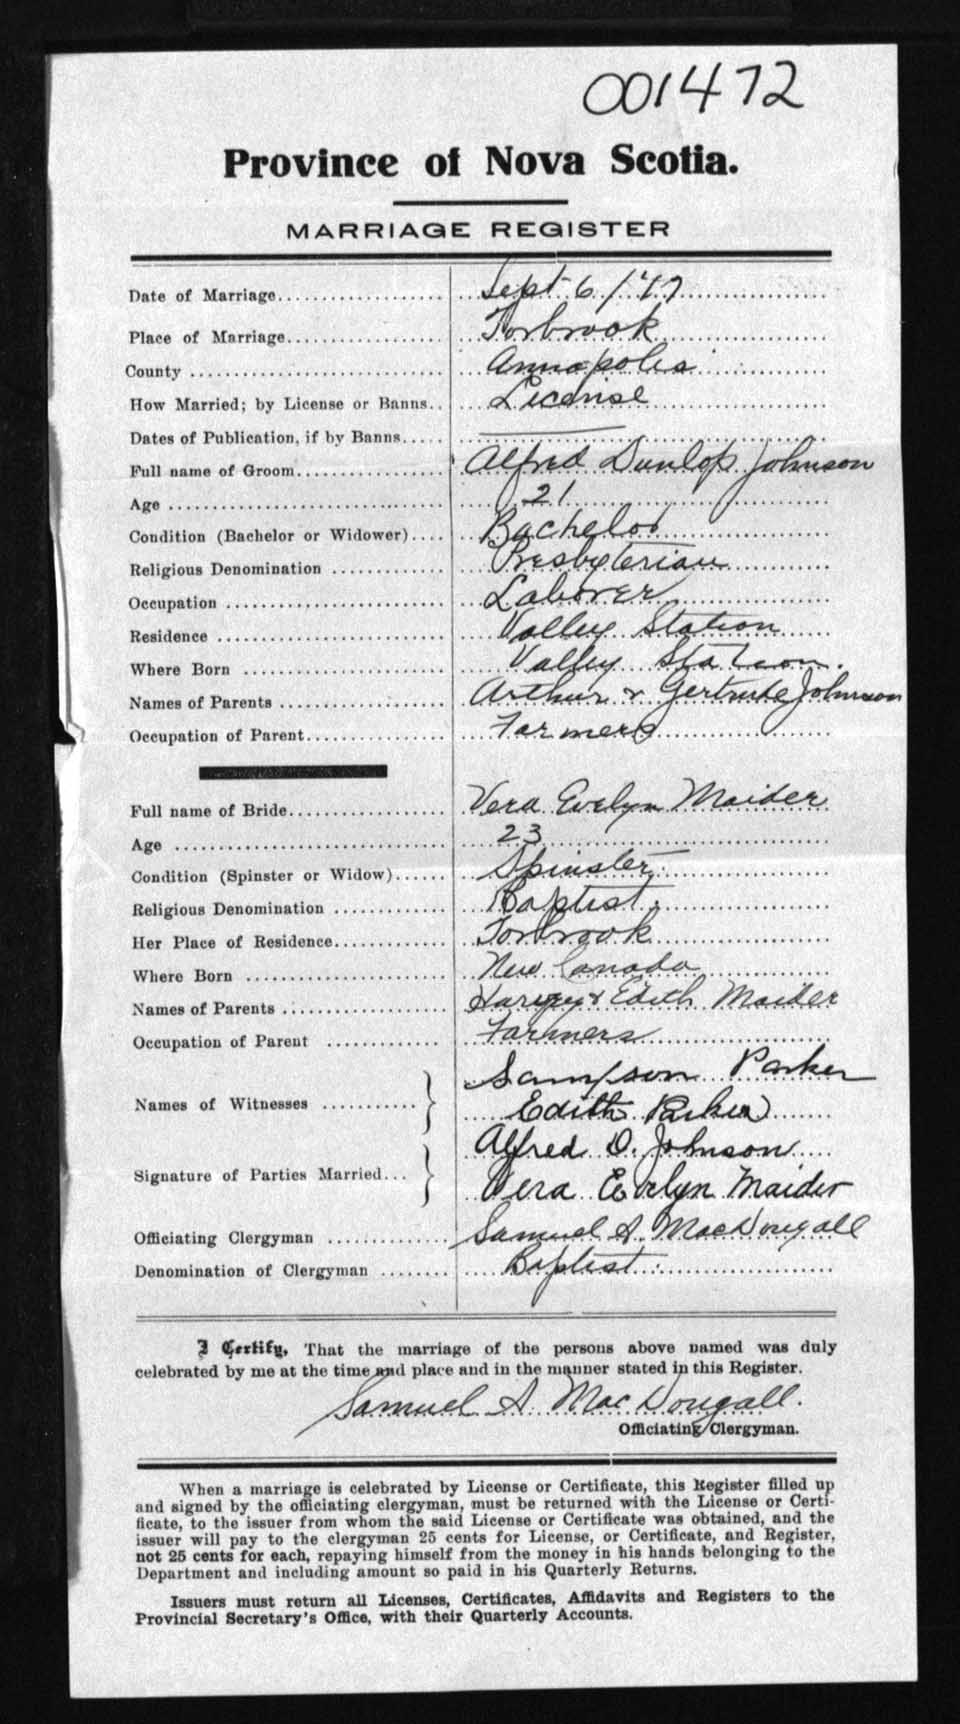 001472
Province of Nova Scotia.
MARRIAGE REGISTER
Date of Marriage.................... Sept 6/'17
Place of Marriage.................... Torbrook
County .................... Annapolis
How Married; by License or Banns.. License
Dates of Publication, if by Banns.....
Full name of Groom.................... Alfred Dunlop Johnson
Age .................... 21
Condition (Bachelor or Widower).... Bachelor
Religious Denomination ............. Presbyterian
Occupation .................... Laborer
Residence .................... Valley Station
Where Born .................... Valley Station.
Names of Parents .................... Arthur & Gertrude Johnson
Occupation of Parent.................... Farmers
Full name of Bride.................... Vera Evelyn Maider
Age .................... 23
Condition (Spinster or Widow)...... Spinster
Religious Denomination ............. Baptist
Her Place of Residence............. Torbrook
Where Born .................... New Canada
Names of Parents .................... & Edith Maider
Occupation of Parent ............. Farmers
Names of Witnesses ........... } Sampson Parker
Edith Parker
Signature of Parties Married... } Alfred D. Johnson
Vera Evelyn Maider
Officiating Clergyman ............. Samuel S. MacDougall
Denomination of Clergyman ........ Baptist
I Certify, That the marriage of the persons above named was duly
celebrated by me at the time and place and in the manner stated in this Register.
Samuel S. MacDougall.
Officiating Clergyman.
When a marriage is celebrated by License or Certificate, this Register filled up
and signed by the officiating clergyman, must be returned with the License or Certi-
ficate, to the issuer from whom the said License or Certificate was obtained, and the
issuer will pay to the clergyman 25 cents for License, or Certificate, and Register,
not 25 cents for each, repaying himself from the money in his hands belonging to the
Department and including amount so paid in his Quarterly Returns.
Issuers must return all Licenses, Certificates, Affidavits and Registers to the
Provincial Secretary's Office, with their Quarterly Accounts.